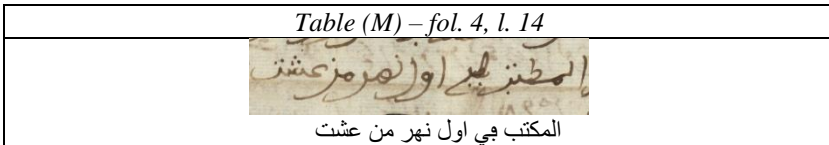 Table (M) – fol. 4, l. 14
المكتب في اول نهر من عشت
المكتب في اول نهر من عشت